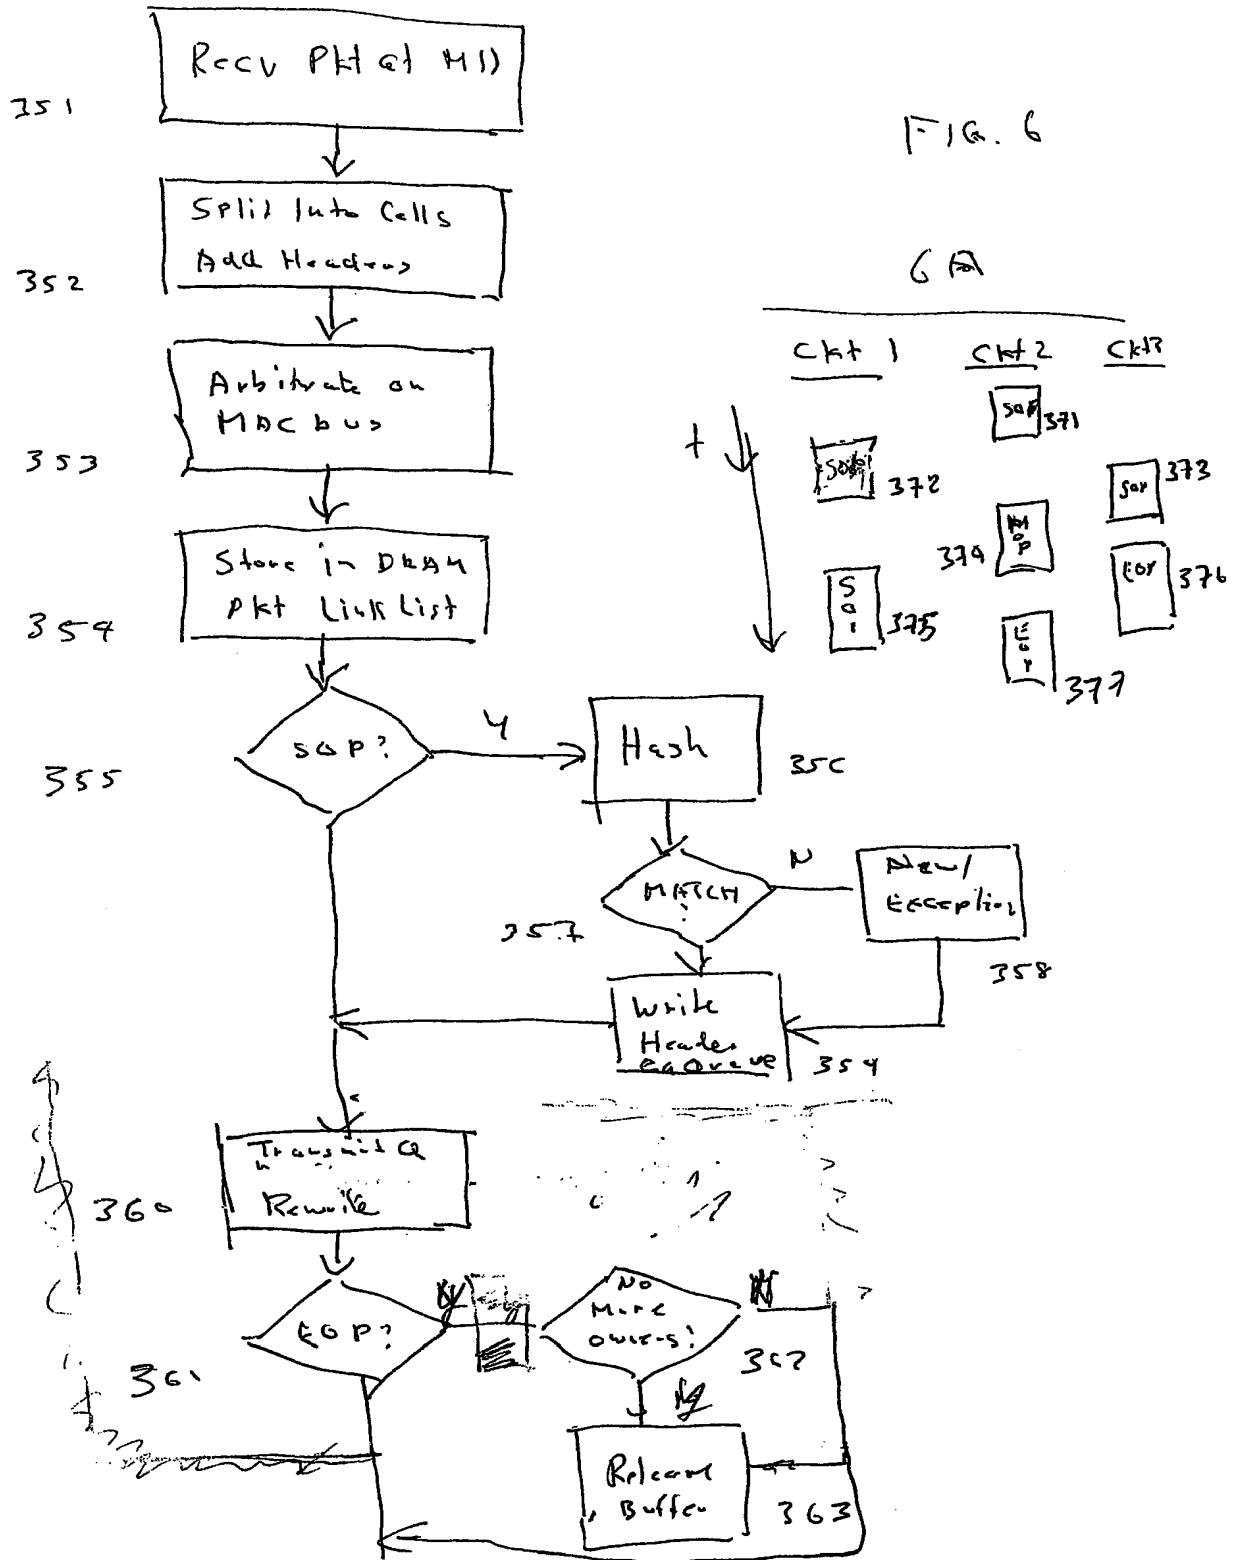 Recv Pkt at MID
351
FIG. 6
Split Into Cells
Add Headers
352
6A
Ckt 1
Ckt 2
Ckt 3
Arbitrate on
MAC bus
353
t
SOP
371
372
SOP
373
MOP
374
EOP
376
375
EOP
377
Store in DRAM
Pkt Link List
354
SOP?
Y
Hash
356
355
MATCH
?
N
New/
Exception
357
358
Write
Header
EnQueue
359
Transmit Q
Rewrite
360
EOP?
Y
No
More
owners?
N
361
362
Y
Release
Buffer
363